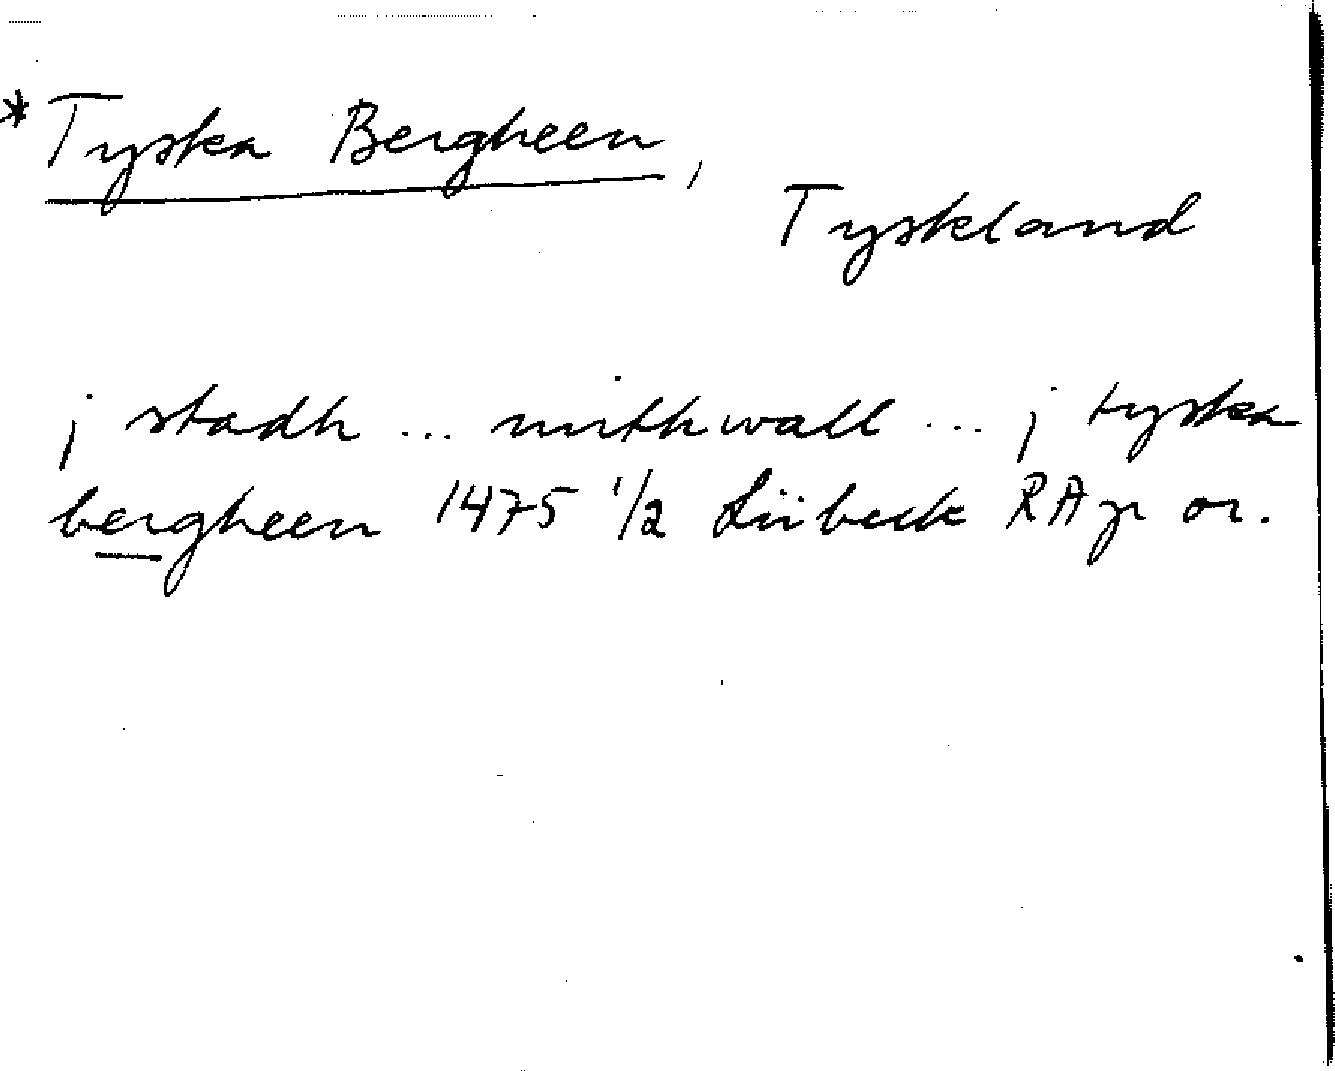 * Tyska Bergheen,
Tyskland
j stadh ... mithwall ... j tyska
bergheen 1475 1/2 Lübeck RAp or.